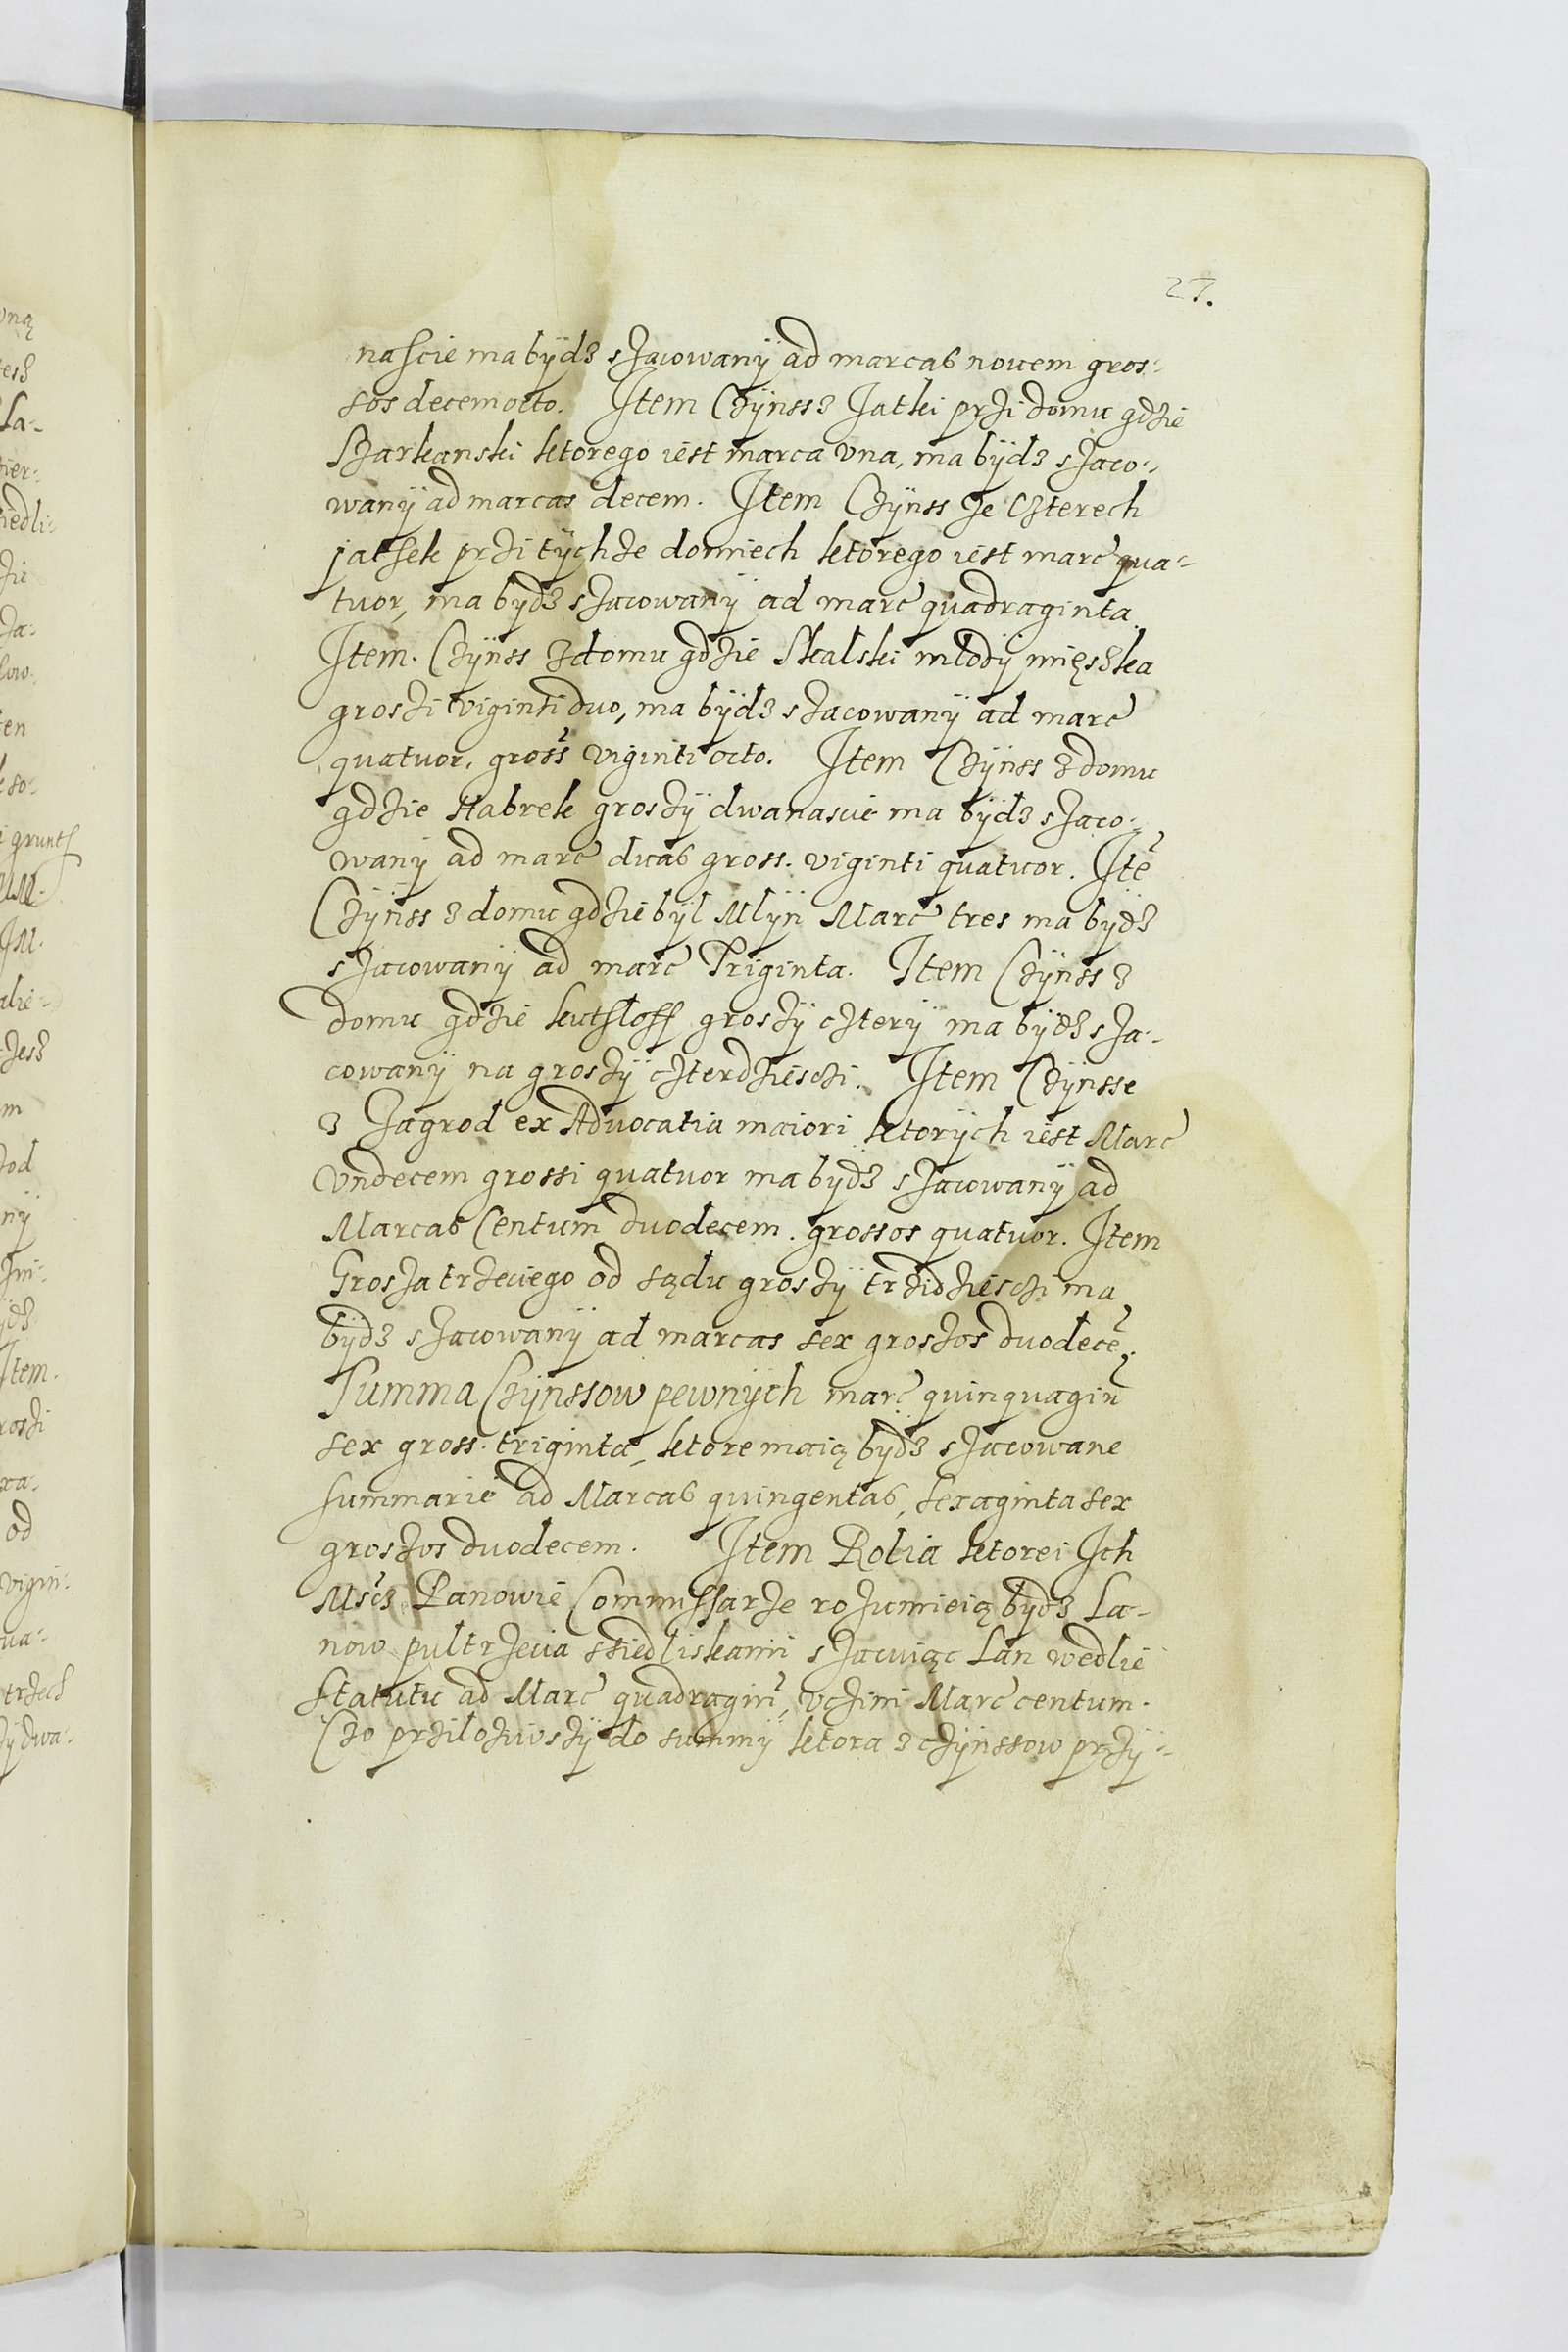 27.
nascie ma bÿdz szacowanÿ ad marcas novem gros-
sos decem octo. Item Czÿnss z Jatki przi domu gdzie
Szarkanski ktorego iest marca vna, ma bÿdz szaco-
wanÿ ad marcas decem. Item Czÿnss ze Czterech
jatkek przi tÿchze domiech ktorego iest marc qua-
tuor, ma bÿdz szacowanÿ ad marc quadraginta.
Item. Czÿnss z domu gdzie Skalski młodÿ mięszka
groszi viginti duo, ma bÿdz szacowanÿ ad marc
quatuor. gross viginti octo. Item Czÿnss z domu
gdzie Habrek groszÿ dwanascie ma bÿdz szaco-
wanÿ ad marc duas gross. viginti quatuor. Itē
Czÿnss z domu gdzie bÿl Mlÿn Marc tres ma bÿdz
szacowanÿ ad marc Triginta. Item Czÿnss z
domu gdzie kutsloff groszÿ czterÿ ma bÿdz sza-
cowanÿ na groszÿ czterdziesczi. Item Czÿnsse
z Zagrod ex Advocatia maiori ktorÿch iest Marc
vndecem grossi quatuor ma bÿdz szacowanÿ ad
Marcas Centum duodecem. grossos quatuor. Item
Grosza trzeciego od sądu groszÿ trzidziesczi ma
bÿdz szacowanÿ ad marcas sex groszos duodecē.
Summa Czÿnssow pewnÿch marc quinquagin
sex gross. triginta, ktore maią bÿdz szacowane
summarie ad Marcas quingentas, sexaginta sex
groszos duodecem. Item Rolia ktorei Ich
Mscz Panowie Commissarze rozumieią bÿdz La-
now pultrzecia sziedliskami szacuiąc Lan wedlie
Statutu ad Marc quadragin, vczini Marc centum.
Czo prziloziwszÿ do summÿ ktora z czÿnssow przÿ-